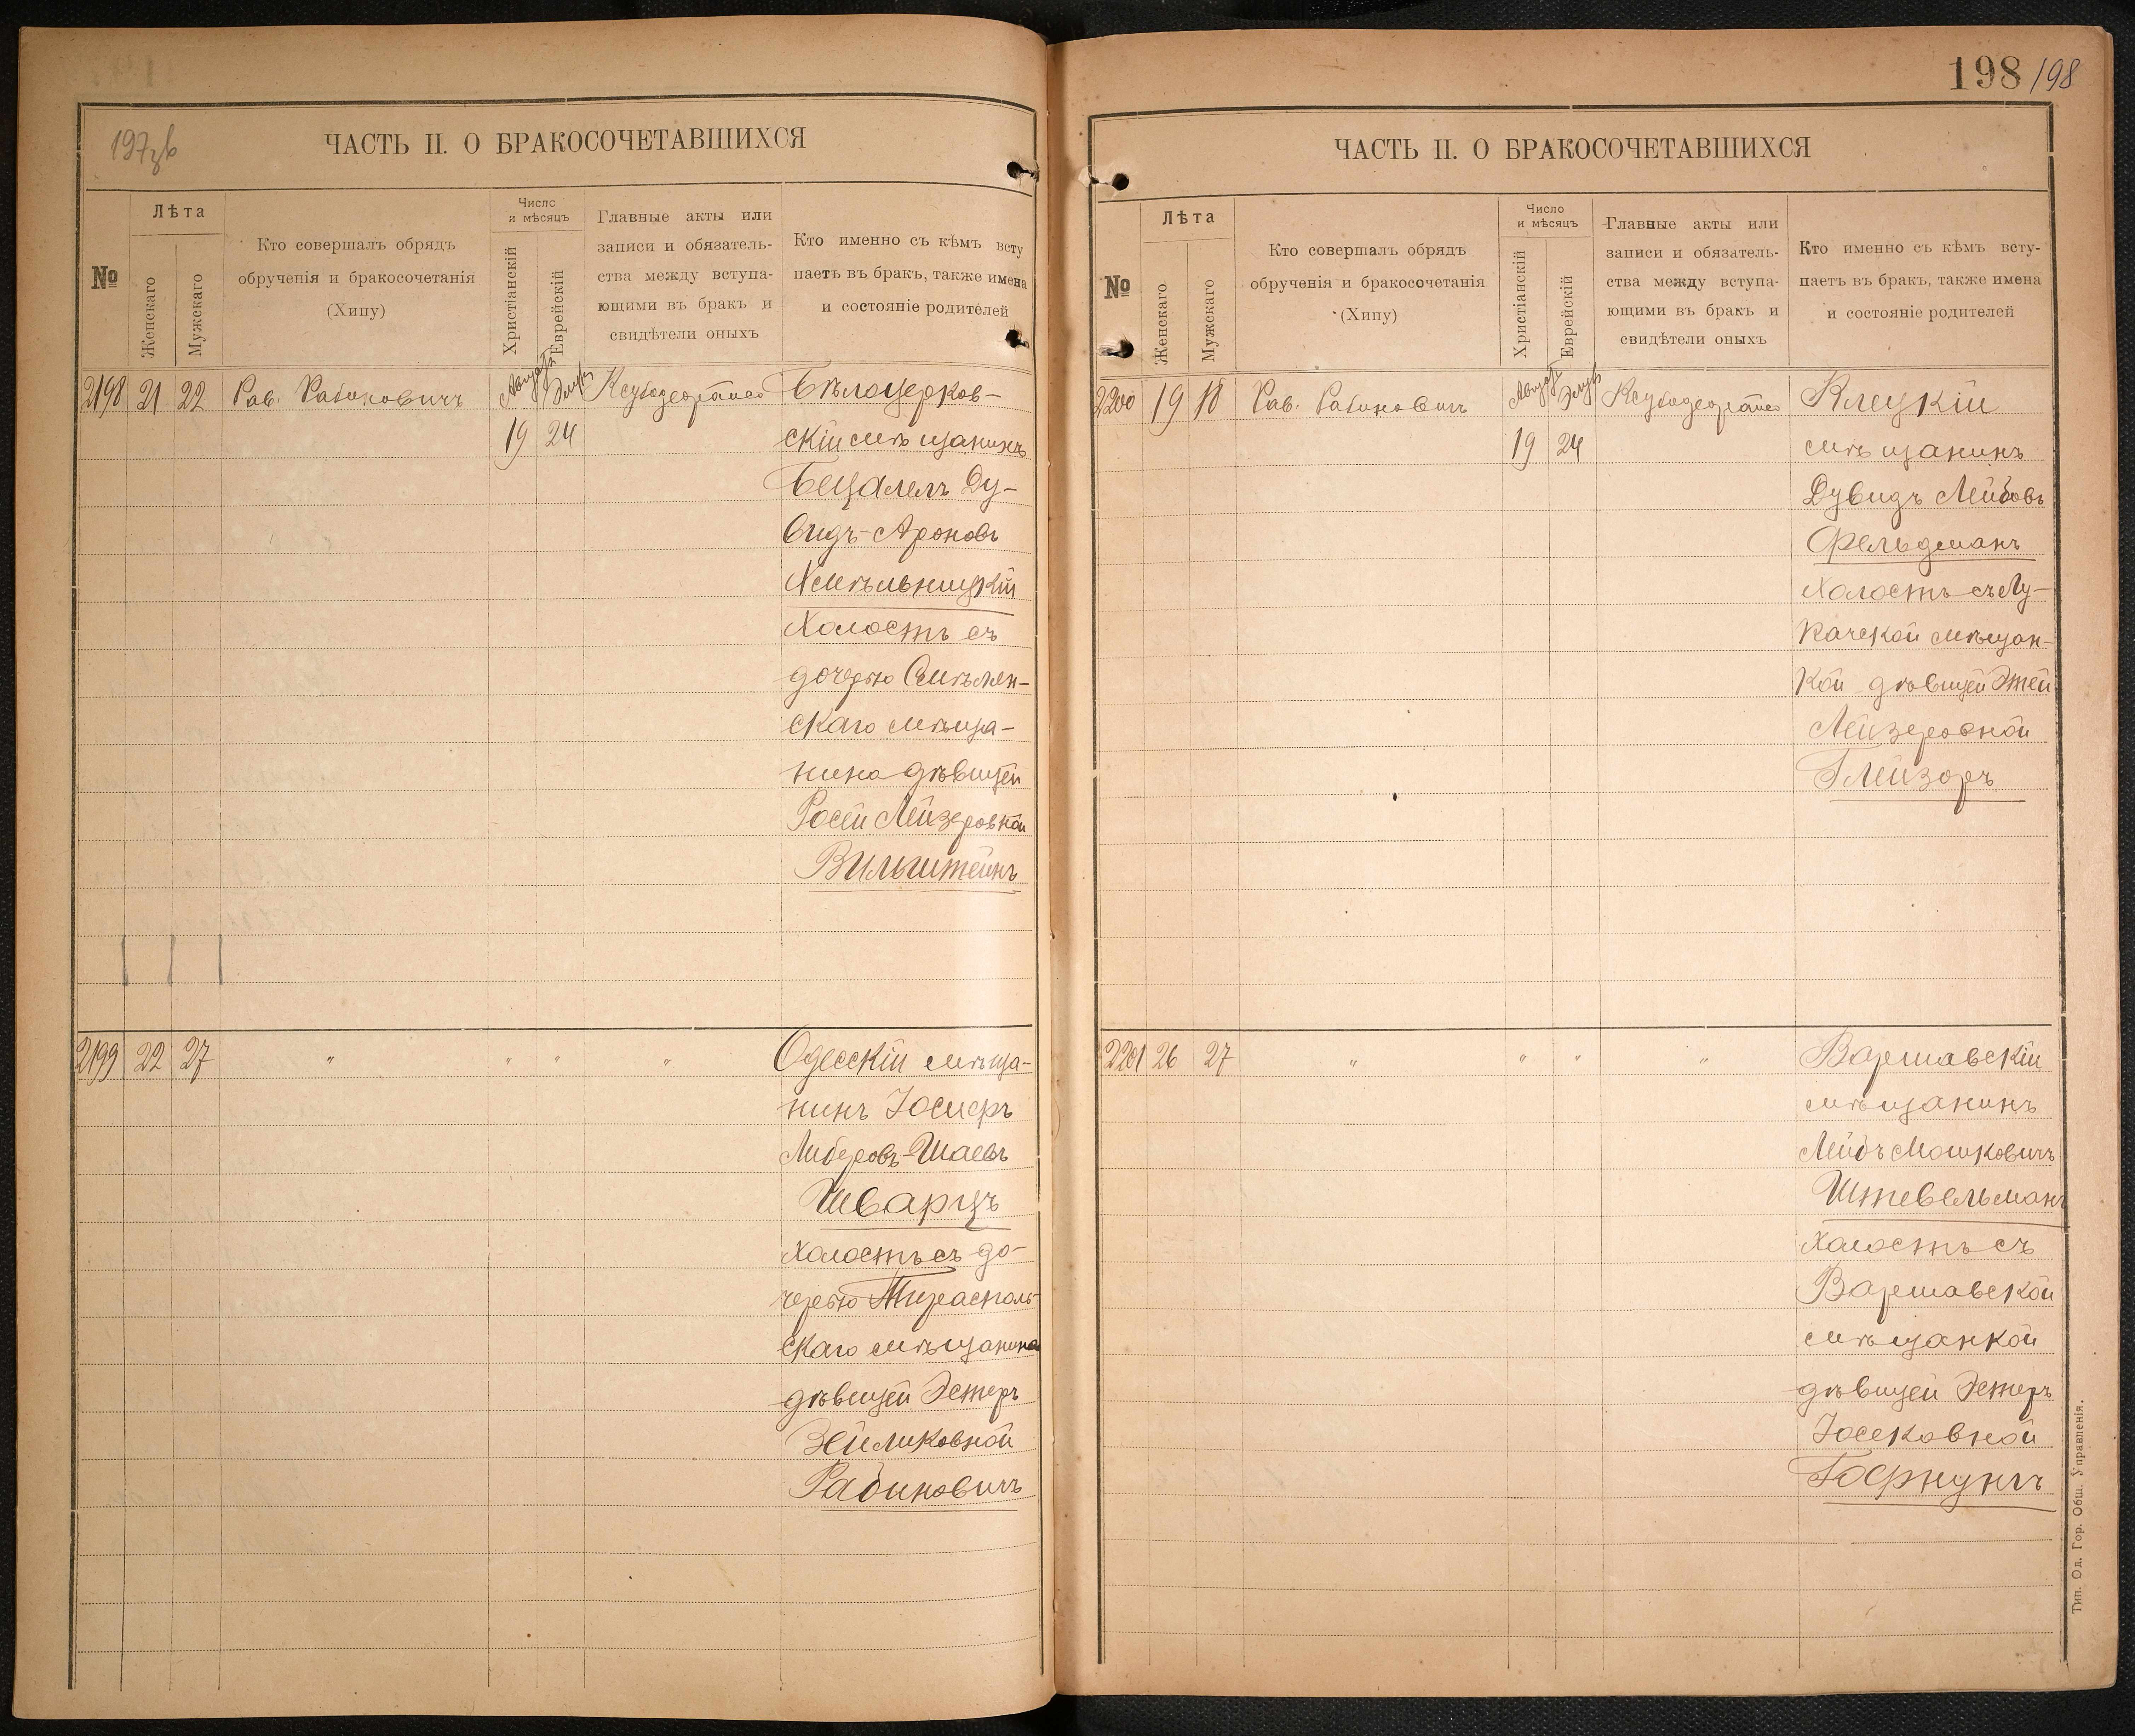 197
ЧАСТЬ II. О БРАКОСОЧЕТАВШИХСЯ
№
Лѣта
Женскаго
Мужескаго
Кто совершалъ обрядъ
обрученія и бракосочетанія
(Хипу)
Число
и мѣсяцъ
Христіанскій
Еврейскій
Главные акты или
записи и обязатель-
ства между вступа-
ющими въ бракъ и
свидѣтели оныхъ
Кто именно съ кѣмъ всту
паетъ въ бракъ, также имена
и состояніе родителей
2198 21 22 Рав. Рабиновичъ Августъ Элулъ Бѣлоцерков-
19 24 скій мѣщанинъ
Бецалель Ду-
видъ-Ароновъ
Хмѣльницкій
Холостъ съ
дочерью Смѣлян-
скаго мѣща-
нина дѣвицей
Росей Лейзеровной
Вильштейнъ
2199 22 27 " " " " Одесскій мѣща-
нинъ Іосифъ
Либеровъ-Шаевъ
Шварцъ
холостъ съ до-
черью Тирасполь-
скаго мѣщанина
дѣвицей Эстеръ
Зейликовной
Рабиновичъ
198 198
ЧАСТЬ II. О БРАКОСОЧЕТАВШИХСЯ
№
Лѣта
Женскаго
Мужскаго
Кто совершалъ обрядъ
обрученія и бракосочетанія
(Хипу)
Число
и мѣсяцъ
Христіанскій
Еврейскій
Главные акты или
записи и обязатель-
ства между вступа-
ющими въ бракъ и
свидѣтели оныхъ
Кто именно съ кѣмъ всту-
паетъ въ бракъ, также имена
и состояніе родителей
2200 19 18 Рав. Рабиновичъ Августъ Элулъ Клецкій
19 24 мѣщанинъ
Дувидъ Лейбовъ
Фельдманъ
холостъ съ Лу-
качской мѣщан-
кой дѣвицей Этей
Лейзеровной
Глейзоръ
2201 26 27 " " " " Варшавскій
мѣщанинъ
Лейбъ Мошковичъ
Штевельманъ
холостъ съ
Варшавской
мѣщанкой
дѣвицей Эстеръ
Іосековной
Гофнунгъ
Тип. Од. Гор. Общ. Управленія.